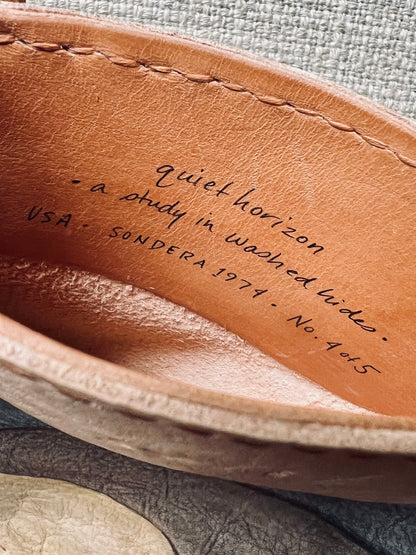 quiet horizon
• a study in washed hides •
USA • SONDERA 1974 • No. 4 of 5